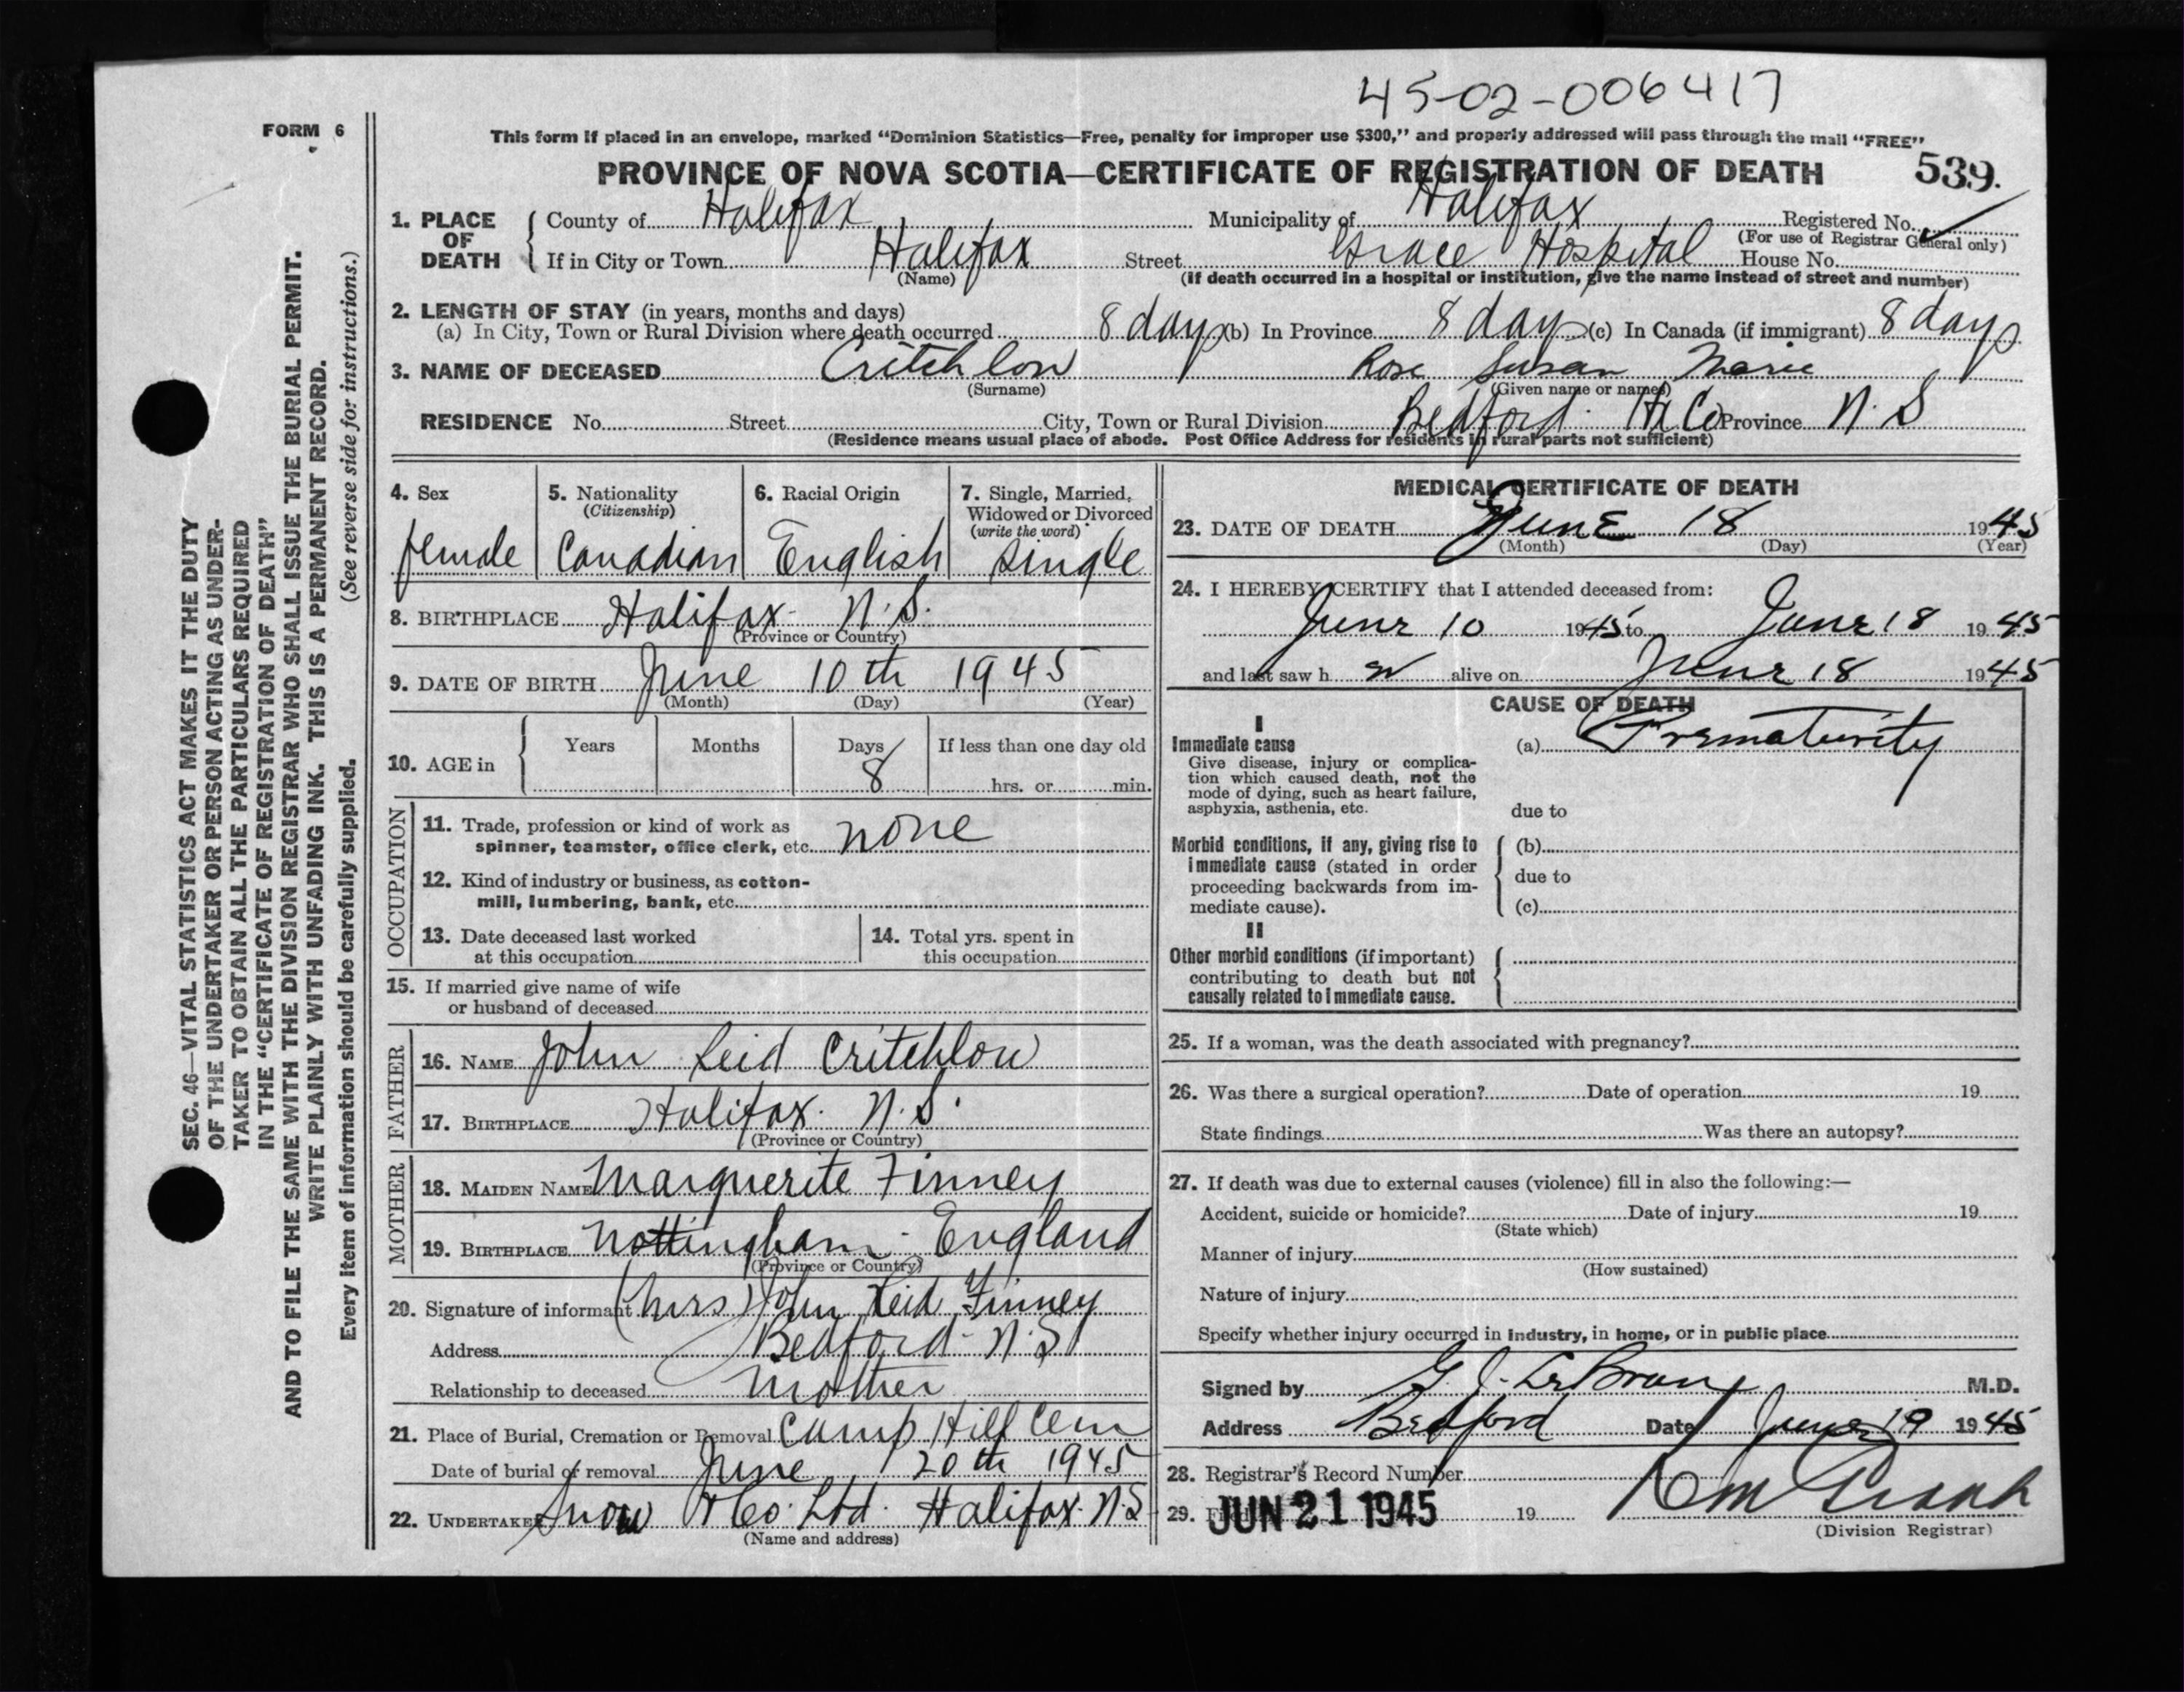 45-02-006417
FORM 6
This form if placed in an envelope, marked “Dominion Statistics—Free, penalty for improper use $300,” and properly addressed will pass through the mail “FREE”
PROVINCE OF NOVA SCOTIA—CERTIFICATE OF REGISTRATION OF DEATH 539.
1. PLACE OF DEATH
County of Halifax Municipality of Halifax Registered No.
(For use of Registrar General only)
If in City or Town Halifax Street Grace Hospital House No.
(Name) (If death occurred in a hospital or institution, give the name instead of street and number)
2. LENGTH OF STAY (in years, months and days)
(a) In City, Town or Rural Division where death occurred 8 days (b) In Province 8 days (c) In Canada (if immigrant) 8 days
3. NAME OF DECEASED Critchlow Rose Susan Marie
(Surname) (Given name or names)
RESIDENCE No. Street City, Town or Rural Division Bedford Hx Co Province N.S
(Residence means usual place of abode. Post Office Address for residents in rural parts not sufficient)
4. Sex
female
5. Nationality
(Citizenship)
Canadian
6. Racial Origin
English
7. Single, Married, Widowed or Divorced
(write the word)
single
8. BIRTHPLACE Halifax N.S.
(Province or Country)
9. DATE OF BIRTH June 10th 1945
(Month) (Day) (Year)
10. AGE in Years Months Days If less than one day old
8 hrs. or min.
OCCUPATION
11. Trade, profession or kind of work as
spinner, teamster, office clerk, etc. none
12. Kind of industry or business, as cotton-
mill, lumbering, bank, etc.
13. Date deceased last worked
at this occupation
14. Total yrs. spent in
this occupation
15. If married give name of wife
or husband of deceased
FATHER
16. NAME John Reid Critchlow
17. BIRTHPLACE Halifax. N.S.
(Province or Country)
MOTHER
18. MAIDEN NAME Marguerite Finney
19. BIRTHPLACE Nottingham - England
(Province or Country)
20. Signature of informant (Mrs) John Reid Finney
Address Bedford - N.S
Relationship to deceased Mother
21. Place of Burial, Cremation or Removal Camp Hill Cem
Date of burial or removal June 20th 1945
22. UNDERTAKER Snow & Co. Ltd. Halifax. N.S
(Name and address)
MEDICAL CERTIFICATE OF DEATH
23. DATE OF DEATH June 18 1945
(Month) (Day) (Year)
24. I HEREBY CERTIFY that I attended deceased from:
June 10 1945 to June 18 1945
and last saw h er alive on June 18 1945
CAUSE OF DEATH
I
Immediate cause
Give disease, injury or complica-
tion which caused death, not the
mode of dying, such as heart failure,
asphyxia, asthenia, etc.
(a) Prematurity
due to
Morbid conditions, if any, giving rise to
immediate cause (stated in order
proceeding backwards from im-
mediate cause).
(b)
due to
(c)
II
Other morbid conditions (if important)
contributing to death but not
causally related to immediate cause.
25. If a woman, was the death associated with pregnancy?
26. Was there a surgical operation? Date of operation 19
State findings Was there an autopsy?
27. If death was due to external causes (violence) fill in also the following:—
Accident, suicide or homicide? Date of injury 19
(State which)
Manner of injury
(How sustained)
Nature of injury
Specify whether injury occurred in industry, in home, or in public place
Signed by G. J. LeBrun M.D.
Address Bedford Date June 19 1945
28. Registrar's Record Number
29. JUN 21 1945 19
(Division Registrar)
SEC. 46—VITAL STATISTICS ACT MAKES IT THE DUTY
OF THE UNDERTAKER OR PERSON ACTING AS UNDER-
TAKER TO OBTAIN ALL THE PARTICULARS REQUIRED
IN THE “CERTIFICATE OF REGISTRATION OF DEATH”
AND TO FILE THE SAME WITH THE DIVISION REGISTRAR WHO SHALL ISSUE THE BURIAL PERMIT.
WRITE PLAINLY WITH UNFADING INK. THIS IS A PERMANENT RECORD.
Every item of information should be carefully supplied. (See reverse side for instructions.)